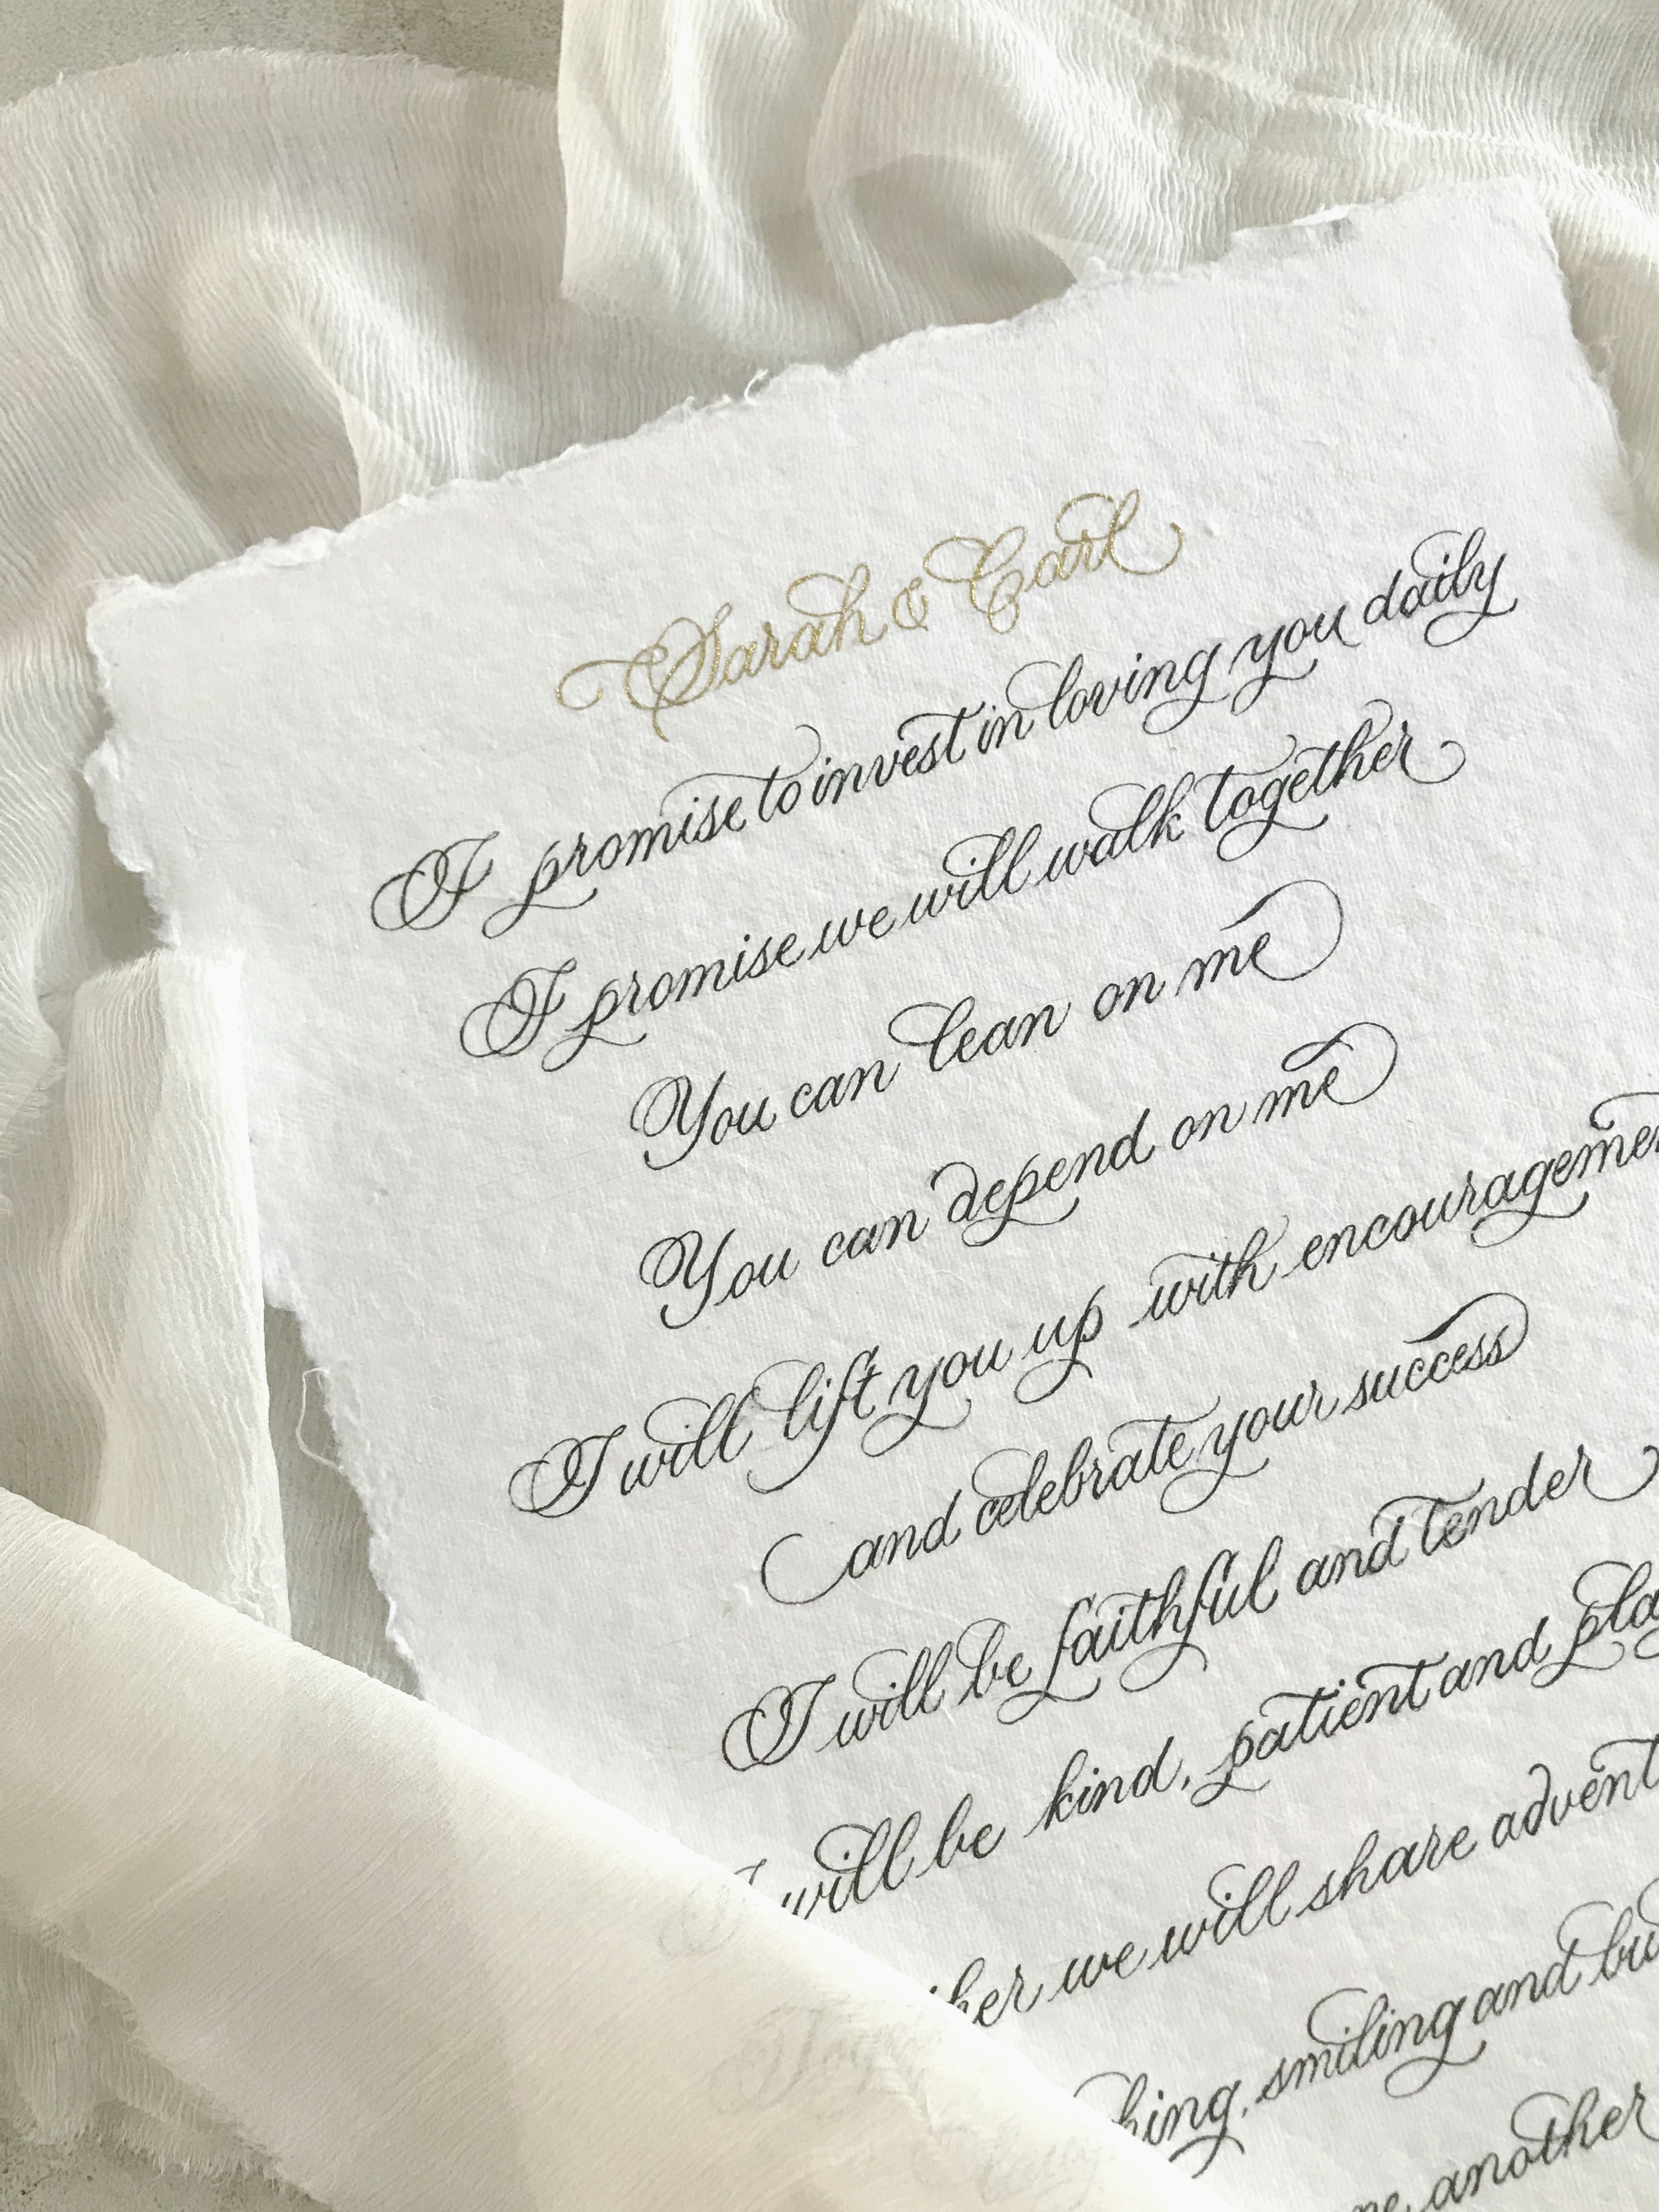 Sarah & Carl
I promise to invest in loving you daily
I promise we will walk together
You can lean on me
You can depend on me
I will lift you up with encouragemen
and celebrate your success
I will be faithful and tender
I will be kind, patient and pla
we will share advent
smiling and bu
another